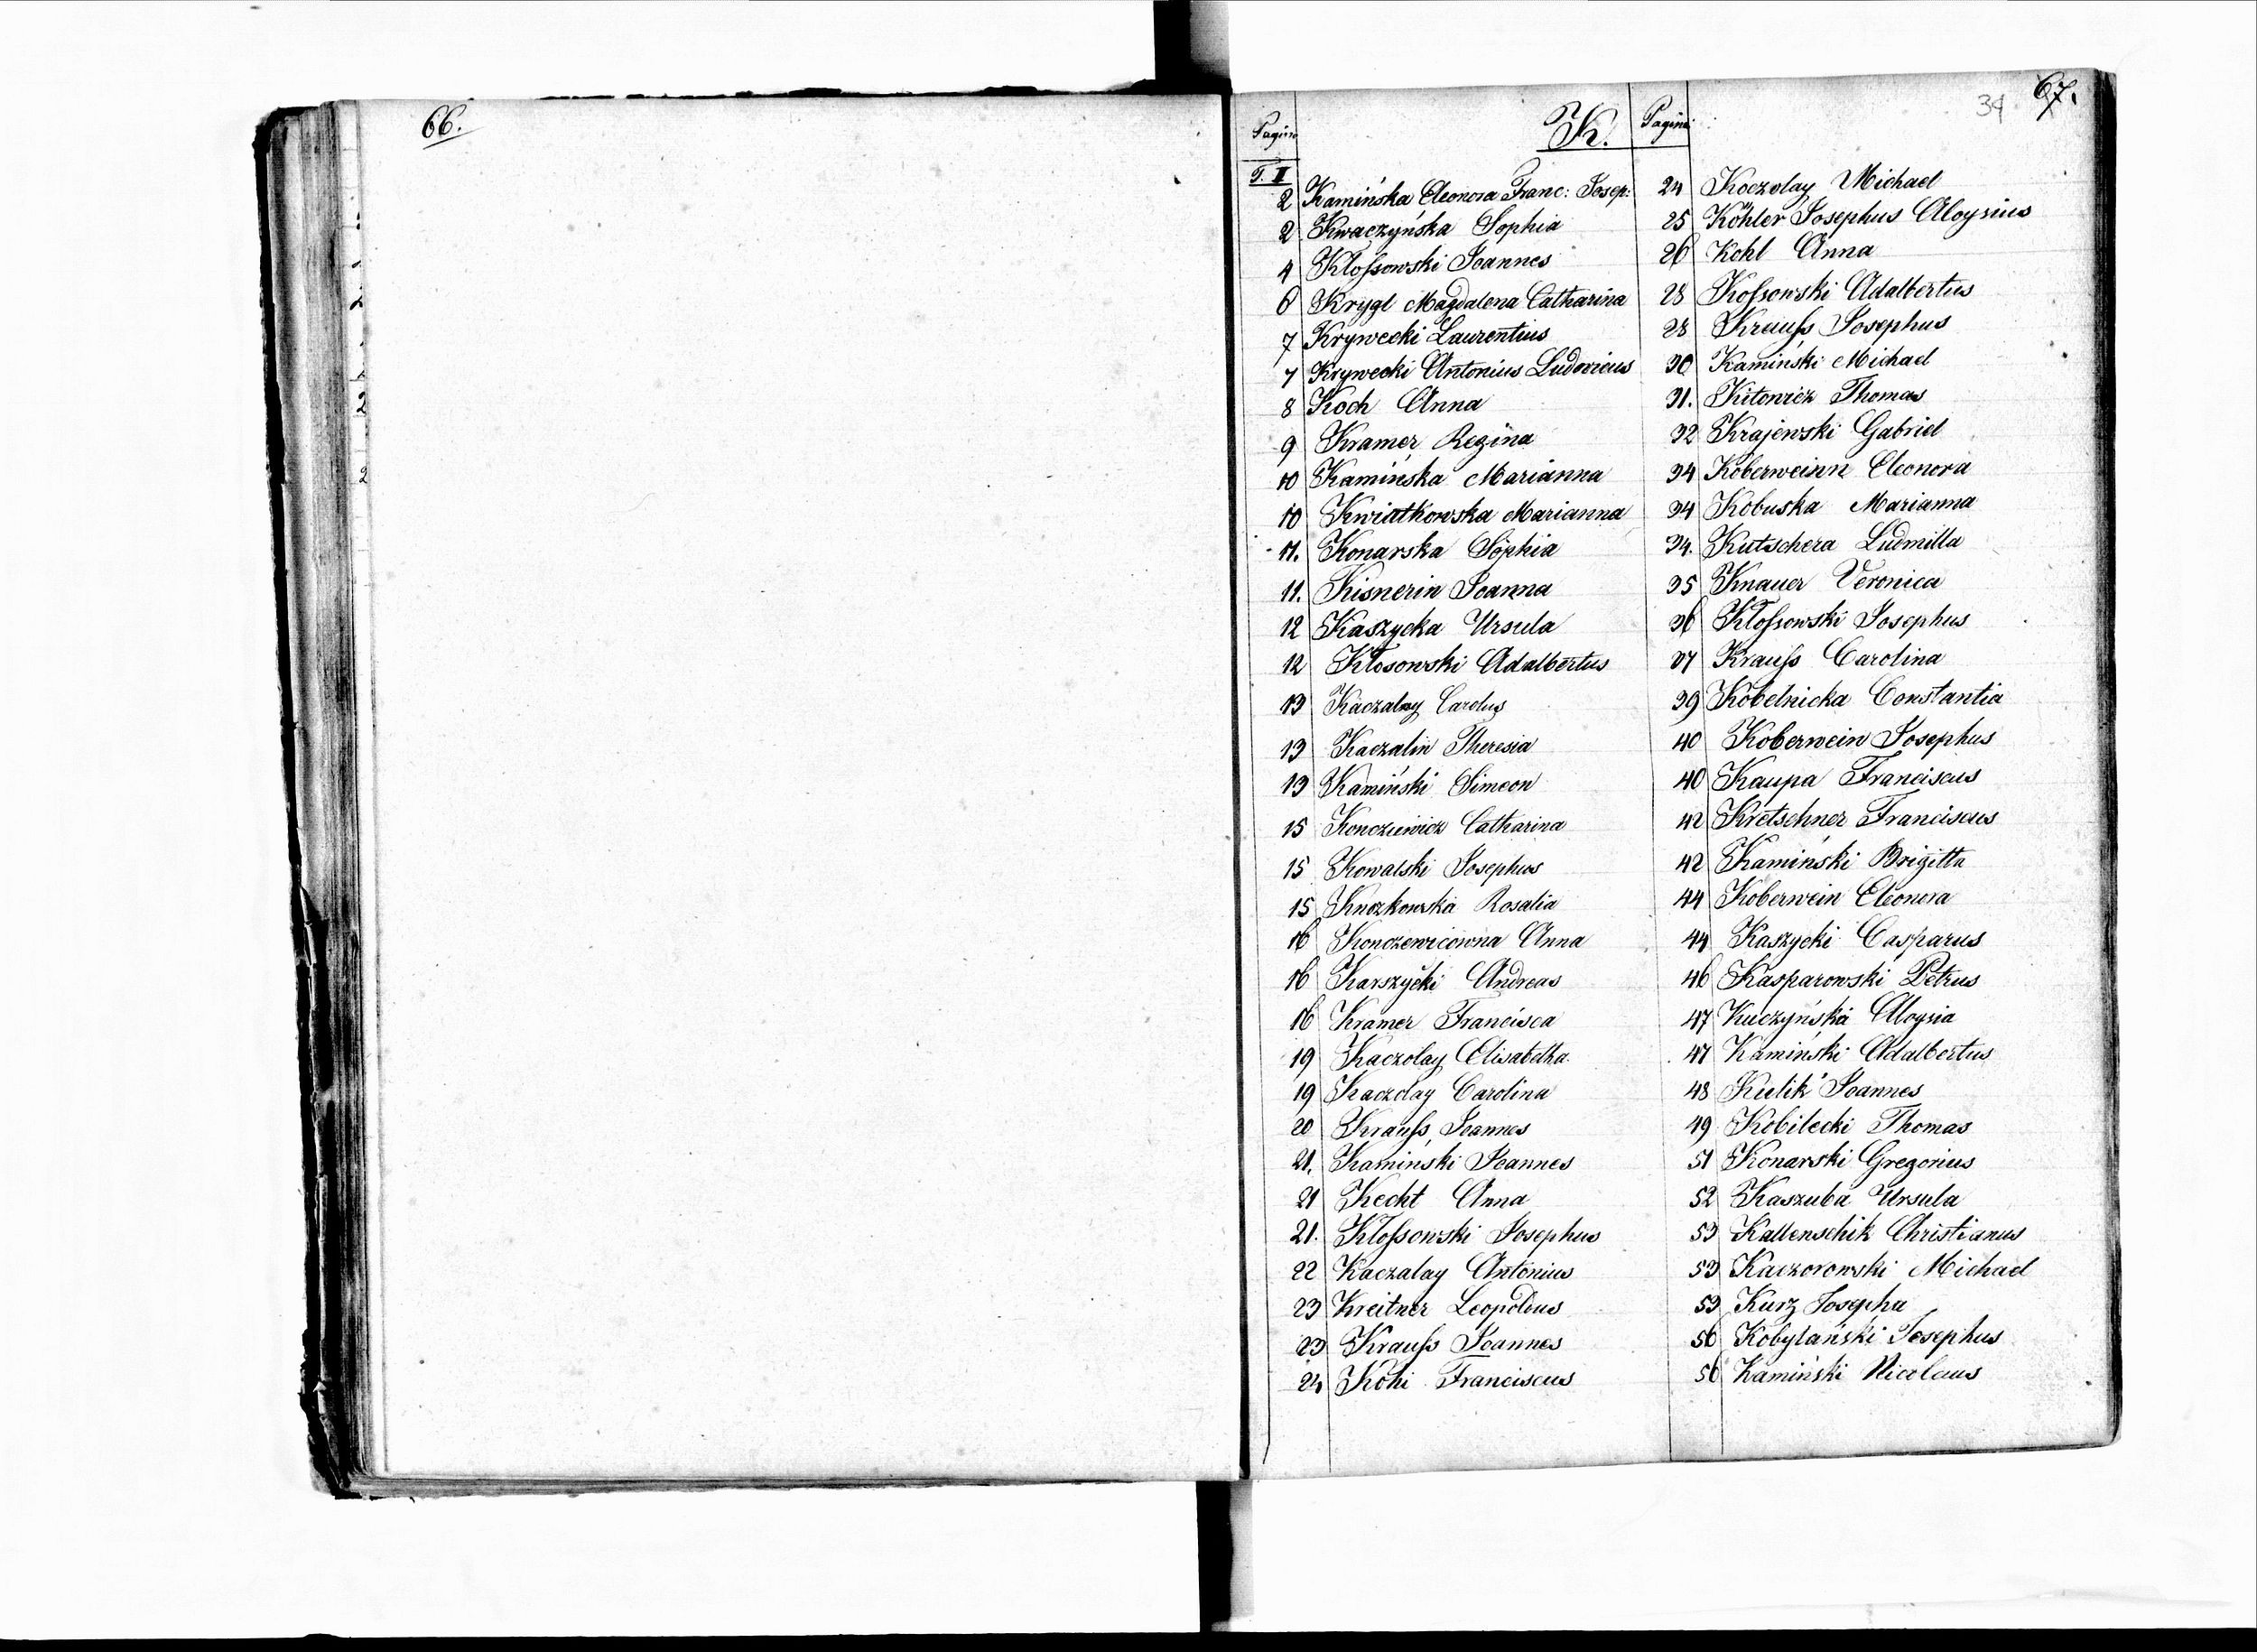 66.
67.
34
Pagina
K.
Pagina
T. II
2 Kamińska Eleonora Franc: Josep:
2 Kwaczyńska Sophia
4 Klossowski Joannes
6 Krygl Magdalena Catharina
7 Krywecki Laurentius
7 Krywecki Antonius Ludovicus
8 Koch Anna
9 Kramer Regina
10 Kamińska Marianna
10 Kwiatkowska Marianna
11. Konarska Sophia
11. Kisnerin Joanna
12 Kaszycka Ursula
12 Klosowski Adalbertus
13 Kaczalay Carolus
13 Kaczalin Theresia
13 Kamiński Simeon
15 Konoziewicz Catharina
15 Kowalski Josephus
15 Rosalia
16 Konczewicowna Anna
16 Karszycki Andreas
16 Kramer Francisca
19 Kaczolay Elisabetha
19 Kaczolay Carolina
20 Krauss Joannes
21. Kamiński Joannes
21 Kecht Anna
21. Klossowski Josephus
22 Kaczalay Antonius
23 Kreitner Leopoldus
23 Krauss Joannes
24 Köhi Franciscus
24 Koczolay Michael
25 Köhler Josephus Aloysius
26 Kohl Anna
28 Kossowski Adalbertus
28 Krauss Josephus
30 Kamiński Michael
31. Kitowicz Thomas
32 Krajewski Gabriel
34 Koberweinn Eleonora
34 Kobuska Marianna
34. Kutschera Ludmilla
35 Knauer Veronica
36 Klossowski Josephus
37 Krauss Carolina
39 Kobelnicka Constantia
40 Koberwein Josephus
40 Kaupa Franciscus
42 Kretschner Franciscus
42 Kamiński Brigitta
44 Koberwein Eleonora
44 Kaszycki Casparus
46 Kasparowski Petrus
47 Kuczyńska Aloysia
47 Kamiński Adalbertus
48 Kulik Joannes
49 Kobilecki Thomas
51 Konarski Gregorius
52 Kaszuba Ursula
53 Kallenschik Christianus
53 Kaczorowski Michael
53 Kurz Josepha
56 Kobylański Josephus
56 Kamiński Nicolaus